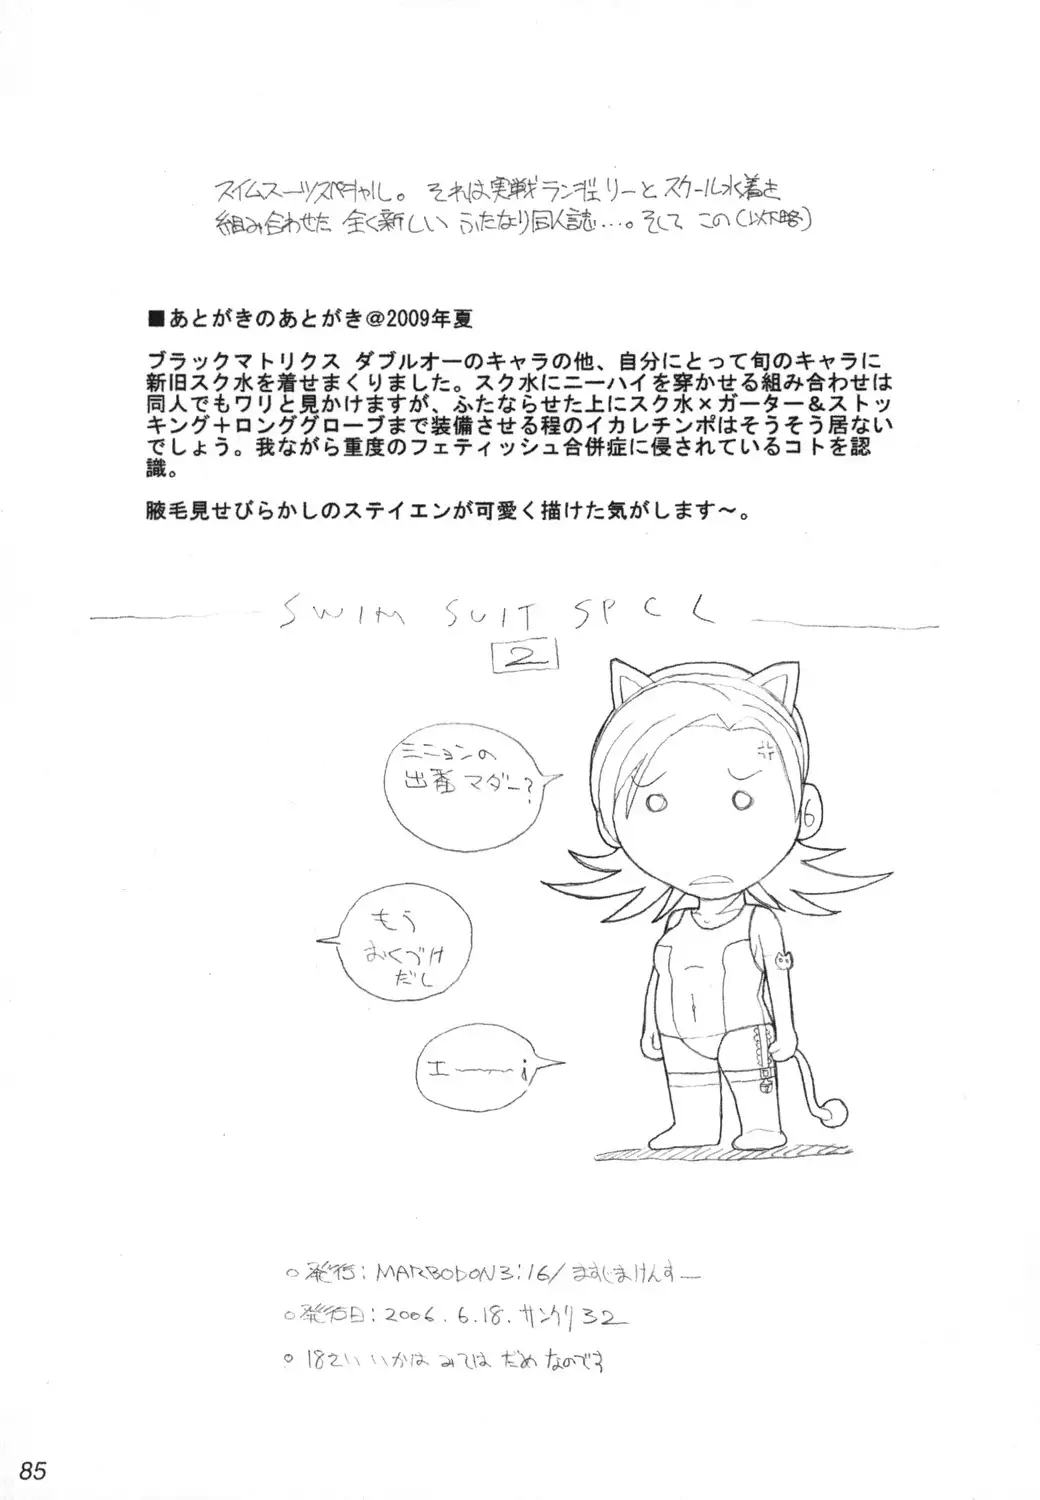 スイムスーツスペシャル。それは実戦ランジェリーとスクール水着を
組み合わせた 全く新しい ふたなり同人誌…。そして この(以下略)
■あとがきのあとがき@2009年夏
ブラックマトリクス ダブルオーのキャラの他、自分にとって旬のキャラに
新旧スク水を着せまくりました。スク水にニーハイを穿かせる組み合わせは
同人でもワリと見かけますが、ふたならせた上にスク水×ガーター&ストッ
キング+ロンググローブまで装備させる程のイカレチンポはそうそう居ない
でしょう。我ながら重度のフェティッシュ合併症に侵されているコトを認
識。
腋毛見せびらかしのステイエンが可愛く描けた気がします~。
SWIM SUIT SPCL
2
ミニョンの
出番マダー?
もう
おくづけ
だし
エーー!
○発行:MARBODON3:16/ますじまけんすー
○発行日:2006.6.18.サンクリ32
○18さい いかは みては だめ なのです
85